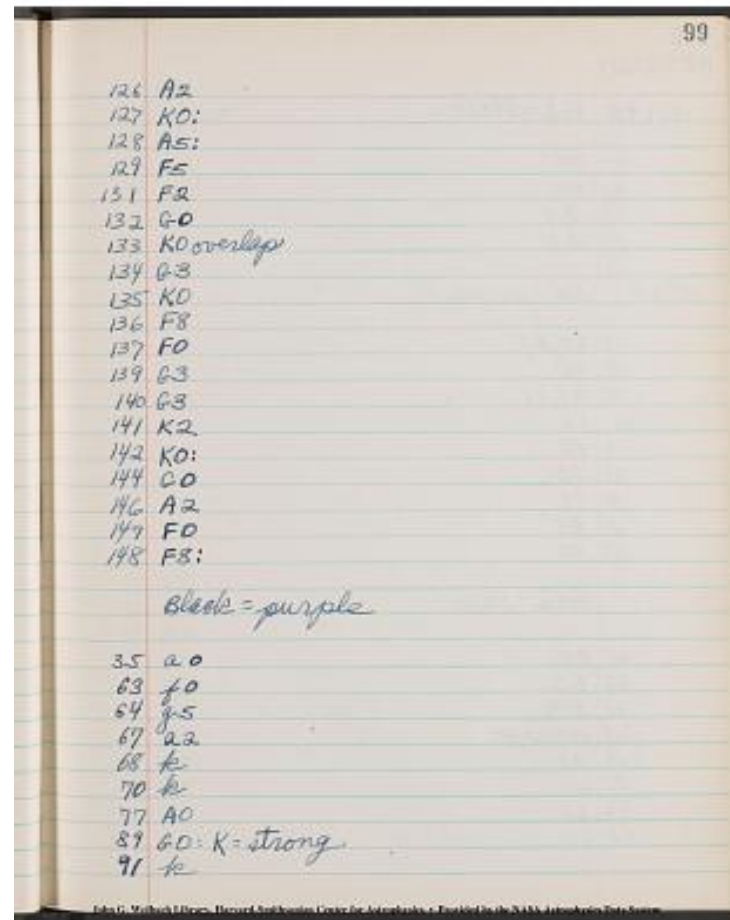 99
126 A2
127 K0:
128 A5:
129 F5
131 F2
132 G0
133 K0 overlap
134 G3
135 K0
136 F8
137 F0
139 G3
140 G3
141 K2
142 K0:
144 G0
146 A2
147 F0
148 F8:
Black = purple
35 a0
63 f0
64 g5
67 a2
68 k
70 k
77 A0
89 G0: K = strong.
91 k
John G. Wolbach Library, Harvard-Smithsonian Center for Astrophysics • Provided by the NASA Astrophysics Data System